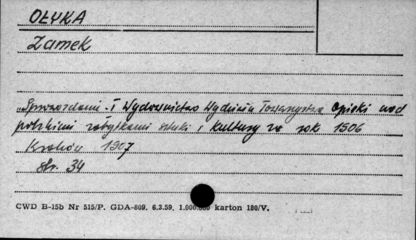 OŁYKA
Zamek
"Sprawozdanie i Wydawnictwo Wydziału Towarzystwa Opieki nad
polskimi zabytkami sztuki i kultury za rok 1906
Kraków 1907
str. 34
CWD B-15b Nr 515/P. GDA-809. 6.3.59. 1.000.000 karton 180/V.